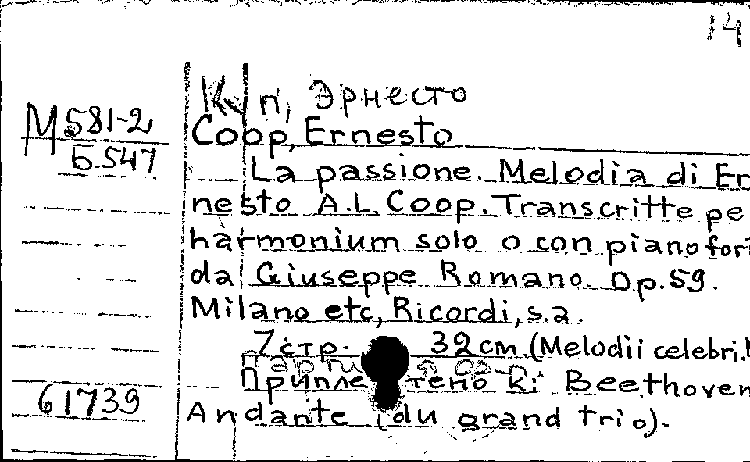 14
Куп, Эрнесто
М581-2
Coop, Ernesto
Б.547
La passione. Melodia di Er
nesto A.L. Coop. Transcritte pe
harmonium solo o con pianofor
da Giuseppe Romano. Op.59.
Milano etc, Ricordi, s.a.
7 стр. 32 cm (Melodii celebri.
Приплетено к: Beethoven
61739
Andante (du grand trio).